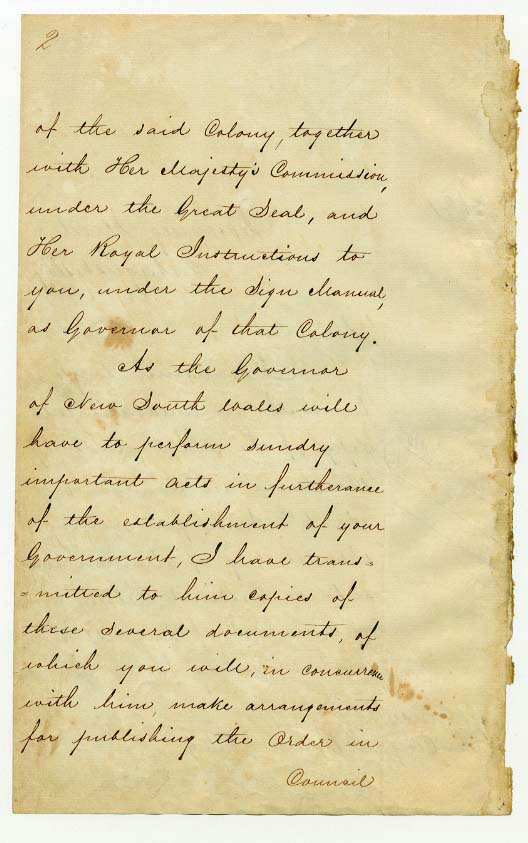 2
of the said Colony, together
with Her Majesty's Commission,
under the Great Seal, and
Her Royal Instructions to
you, under the Sign Manual,
as Governor of that Colony.
As the Governor
of New South Wales will
have to perform sundry
important acts in furtherance
of the establishment of your
Government, I have trans=
=mitted to him copies of
these several documents, of
which you will, in concurrence
with him, make arrangements
for publishing the Order in
Council